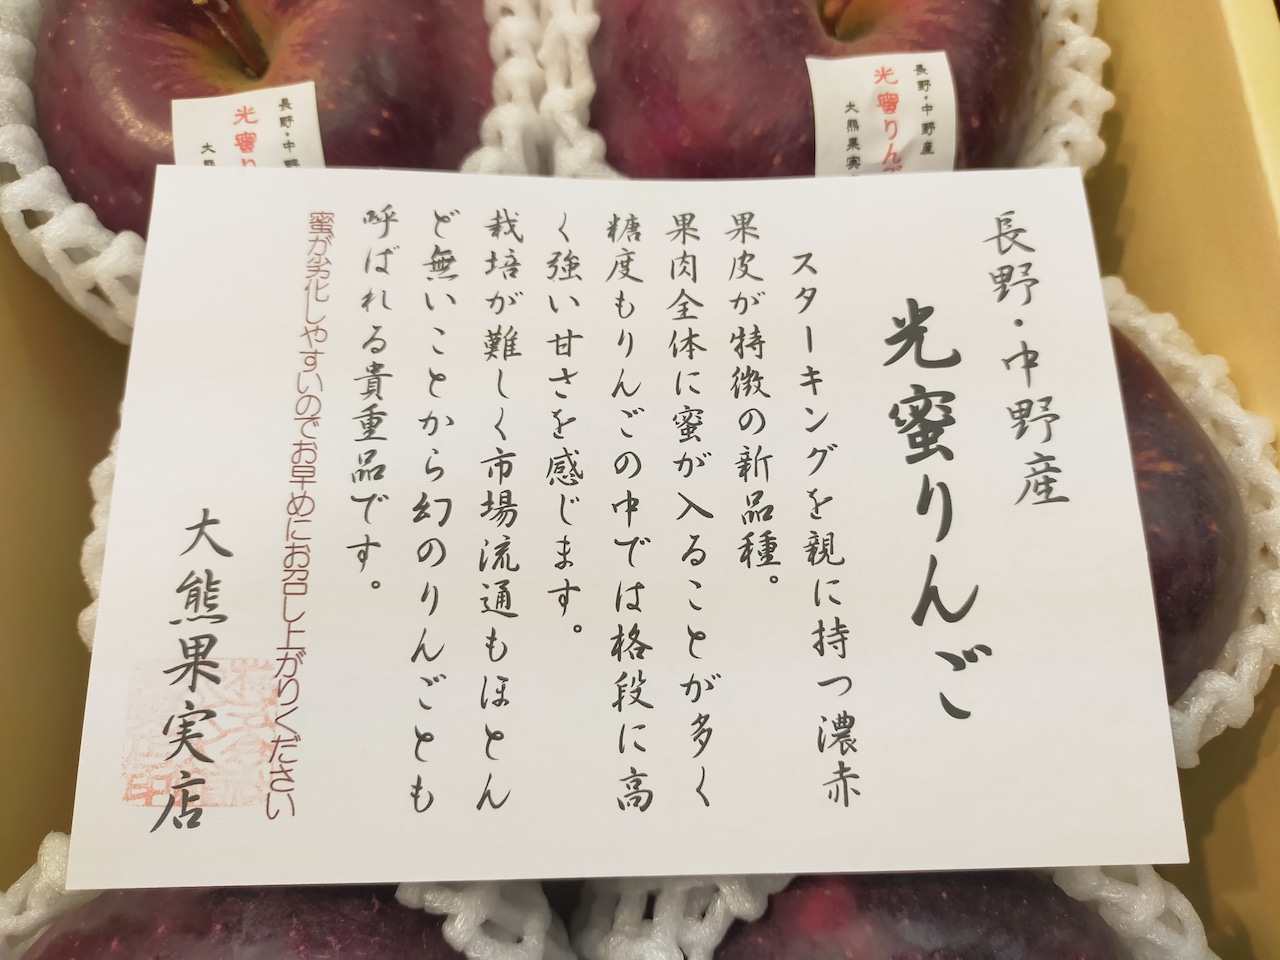 長野・中野産
光蜜りんご
スターキングを親に持つ濃赤
果皮が特徴の新品種。
果肉全体に蜜が入ることが多く
糖度もりんごの中では格段に高
く強い甘さを感じます。
栽培が難しく市場流通もほとん
ど無いことから幻のりんごとも
呼ばれる貴重品です。
蜜が劣化しやすいのでお早めにお召し上がりください
大熊果実店
長野・中野産
光蜜りんご
大熊果実
長野・中野
光蜜り
大熊